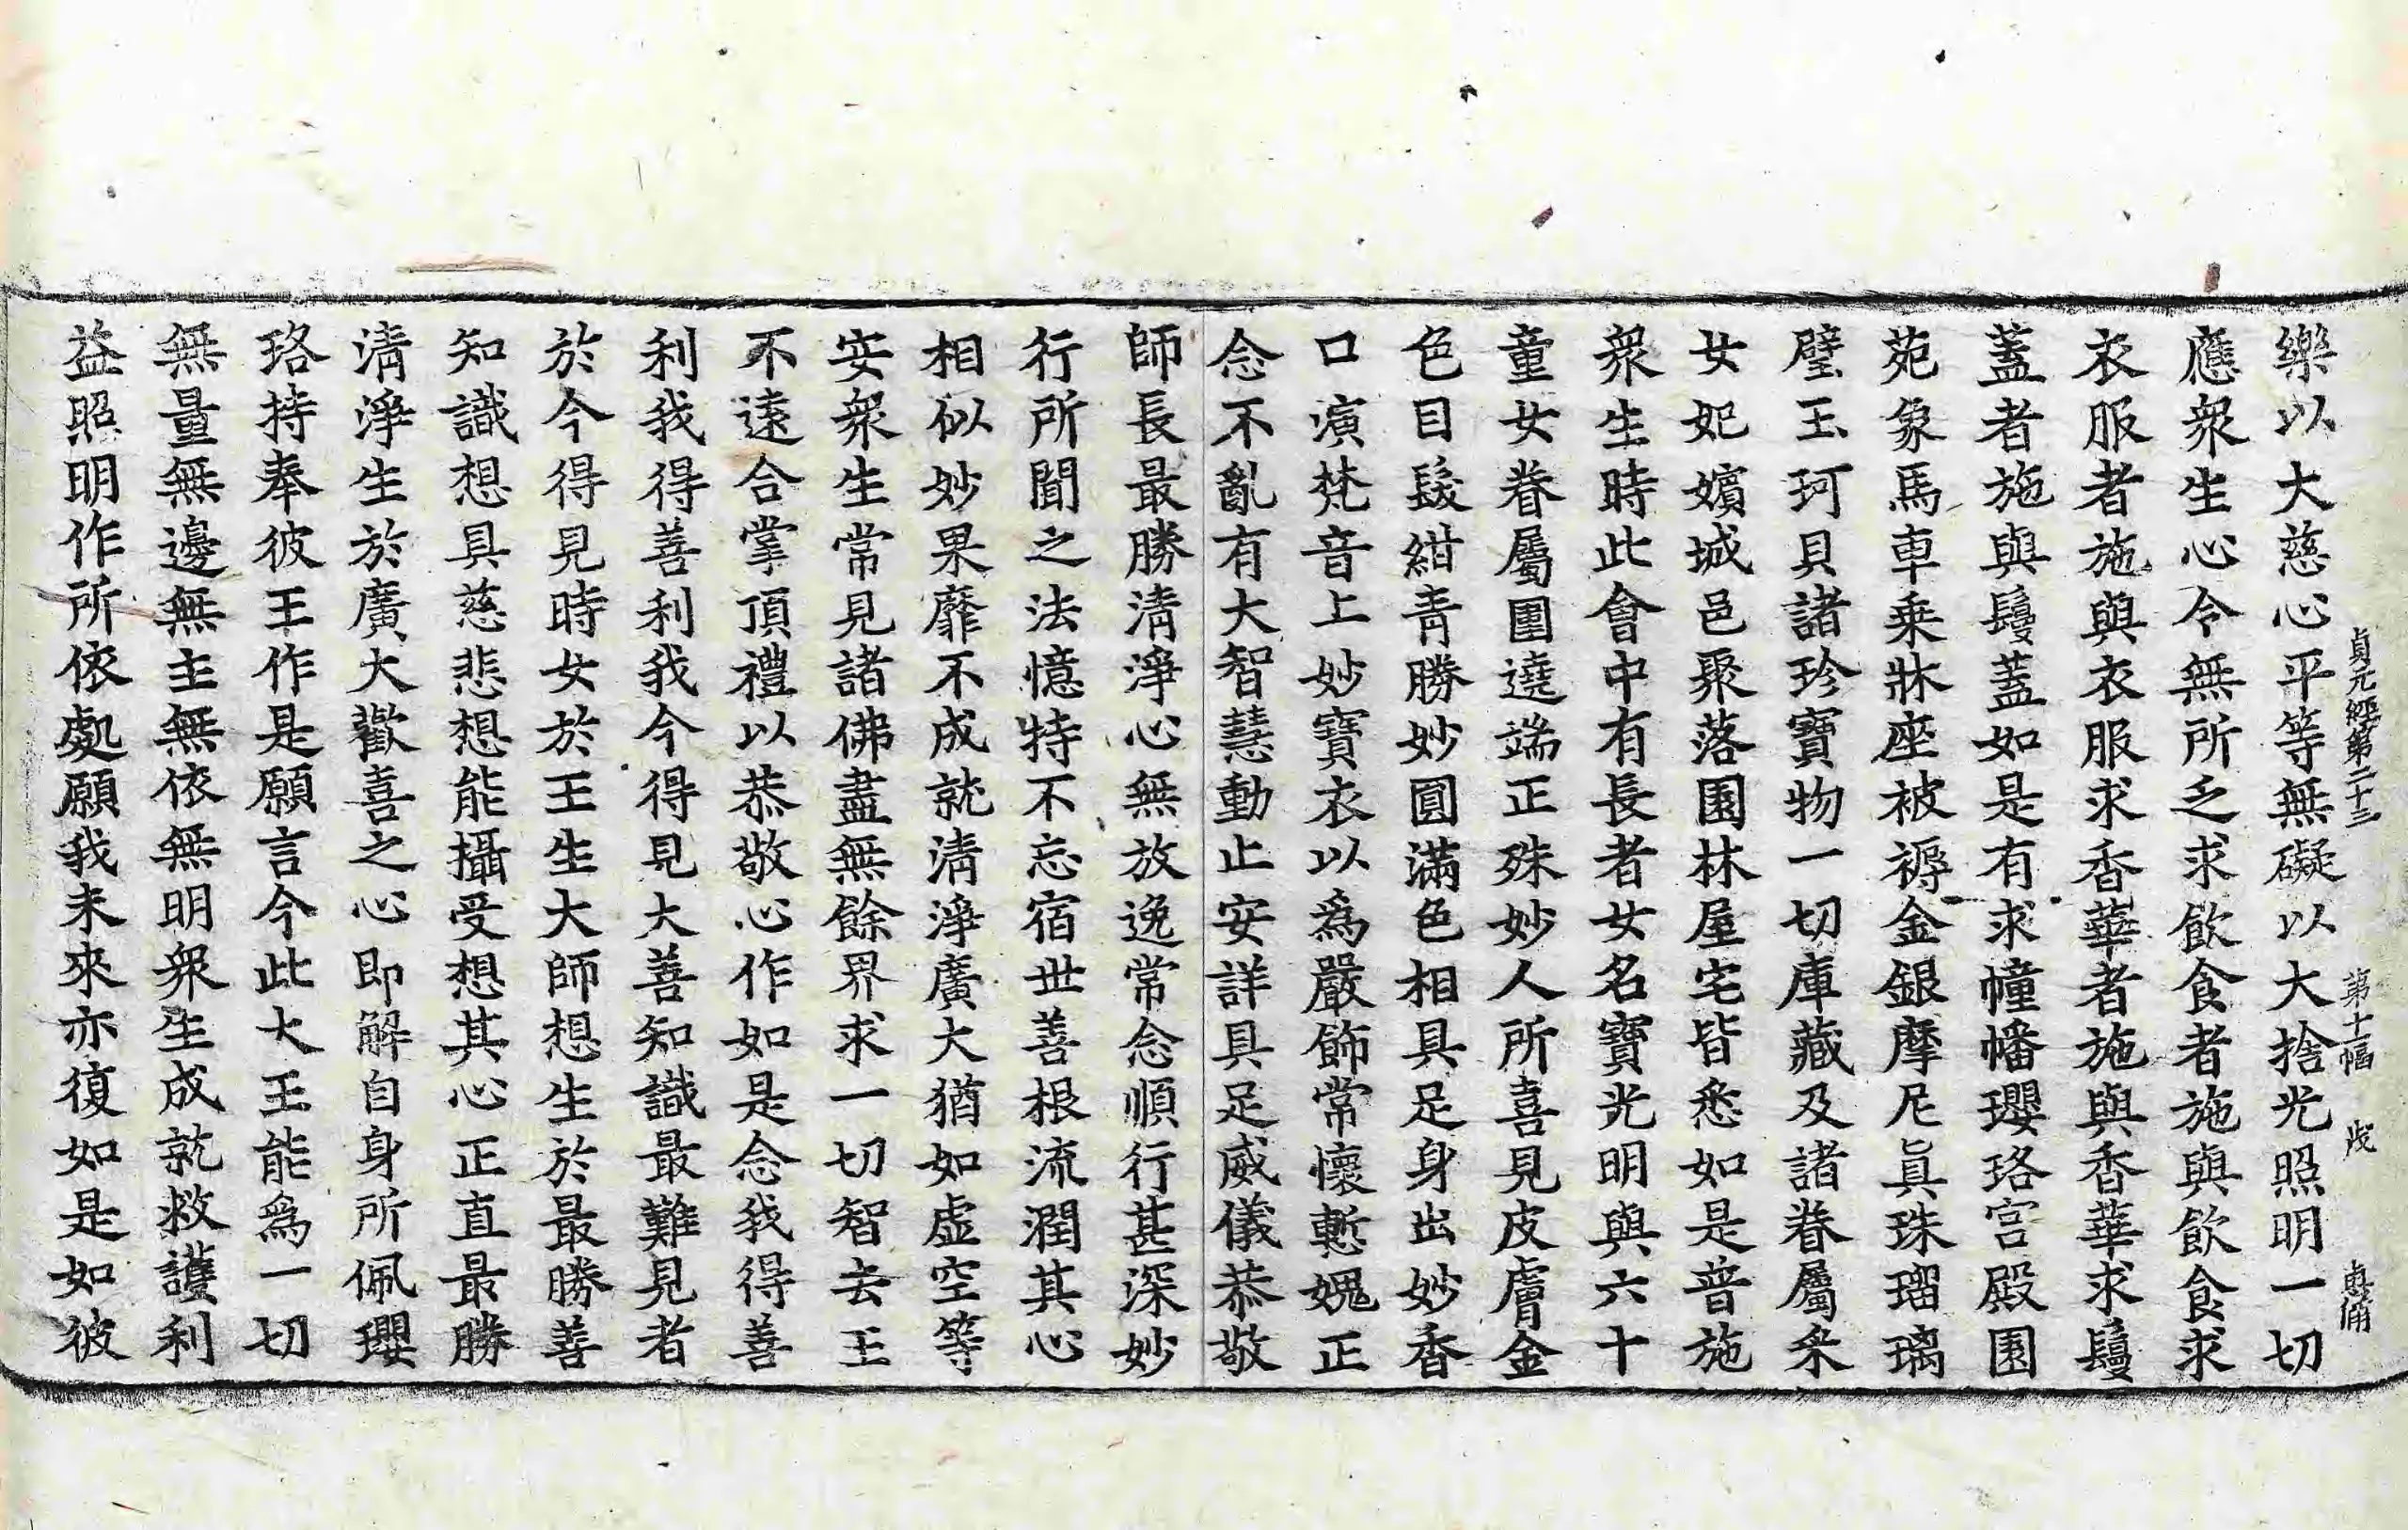 貞元經第二十三 第十二幅 戌
樂以大慈心平等無礙以大捨光照明一切
應衆生心令無所乏求飲食者施與飲食求
衣服者施與衣服求香華者施與香華求鬘
蓋者施與鬘蓋如是有求幢幡瓔珞宮殿園
苑象馬車乗牀座被褥金銀摩尼眞珠瑠璃
璧玉珂貝諸珍寶物一切庫藏及諸眷屬婇
女妃嬪城邑聚落園林屋宅皆悉如是普施
衆生時此會中有長者女名寶光明與六十
童女眷屬圍遶端正殊妙人所喜見皮膚金
色目髮紺青勝妙圓滿色相具足身出妙香
口演梵音上妙寶衣以爲嚴飾常懷慙媿正
念不亂有大智慧動止安詳具足威儀恭敬
師長最勝清淨心無放逸常念順行甚深妙
行所聞之法憶持不忘宿世善根流潤其心
相似妙果靡不成就清淨廣大猶如虚空等
安衆生常見諸佛盡無餘界求一切智去王
不遠合掌頂禮以恭敬心作如是念我得善
利我得善利我今得見大善知識最難見者
於今得見時女於王生大師想生於最勝善
知識想具慈悲想能攝受想其心正直最勝
清淨生於廣大歡喜之心即解自身所佩瓔
珞持奉彼王作是願言今此大王能爲一切
無量無邊無主無依無明衆生成就救護利
益照明作所依處願我未來亦復如是如彼